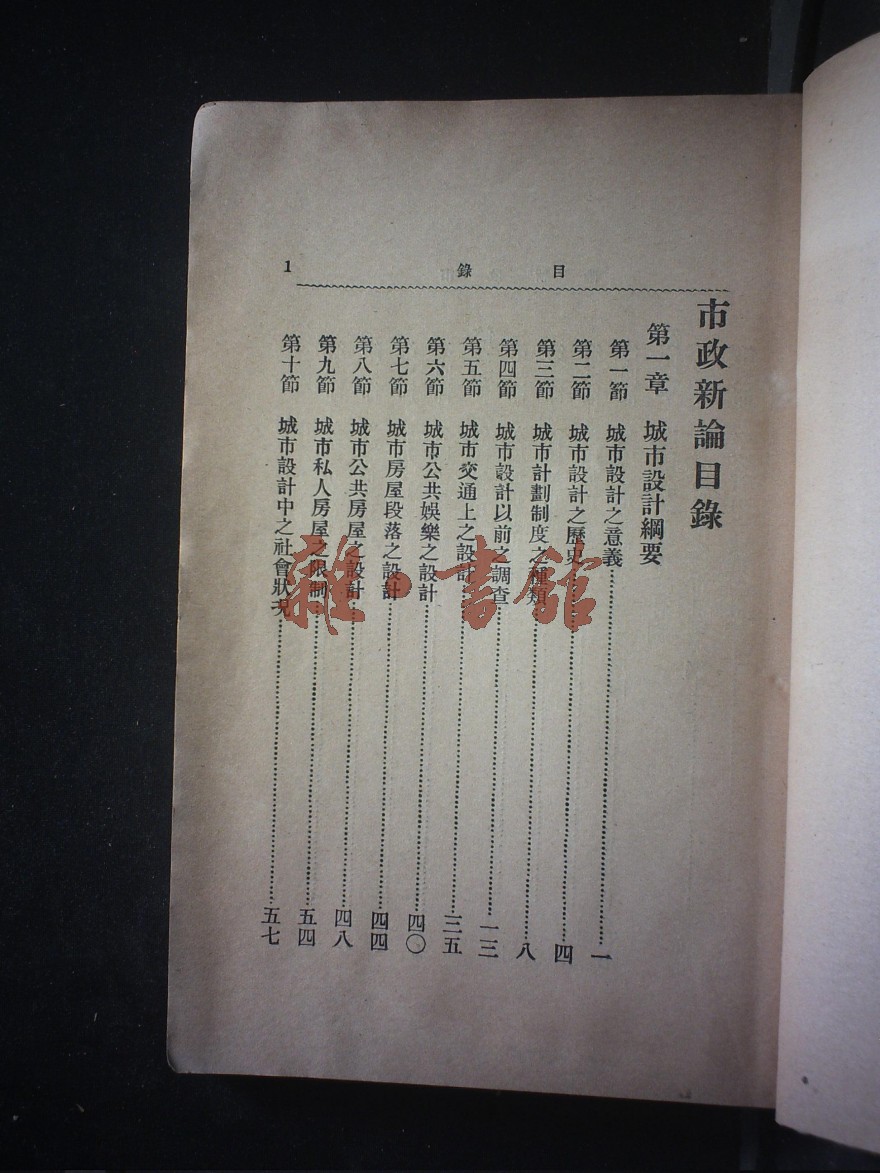 目錄
1
市政新論目錄
第一章 城市設計綱要
第一節 城市設計之意義……一
第二節 城市設計之歷史……四
第三節 城市計劃制度之種類……八
第四節 城市設計以前之調查……一三
第五節 城市交通上之設計……三五
第六節 城市公共娛樂之設計……四〇
第七節 城市房屋段落之設計……四四
第八節 城市公共房屋之設計……四八
第九節 城市私人房屋之限制……五四
第十節 城市設計中之社會狀況……五七
雜·書館